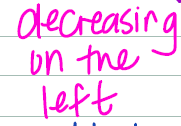 decreasing
on the
left